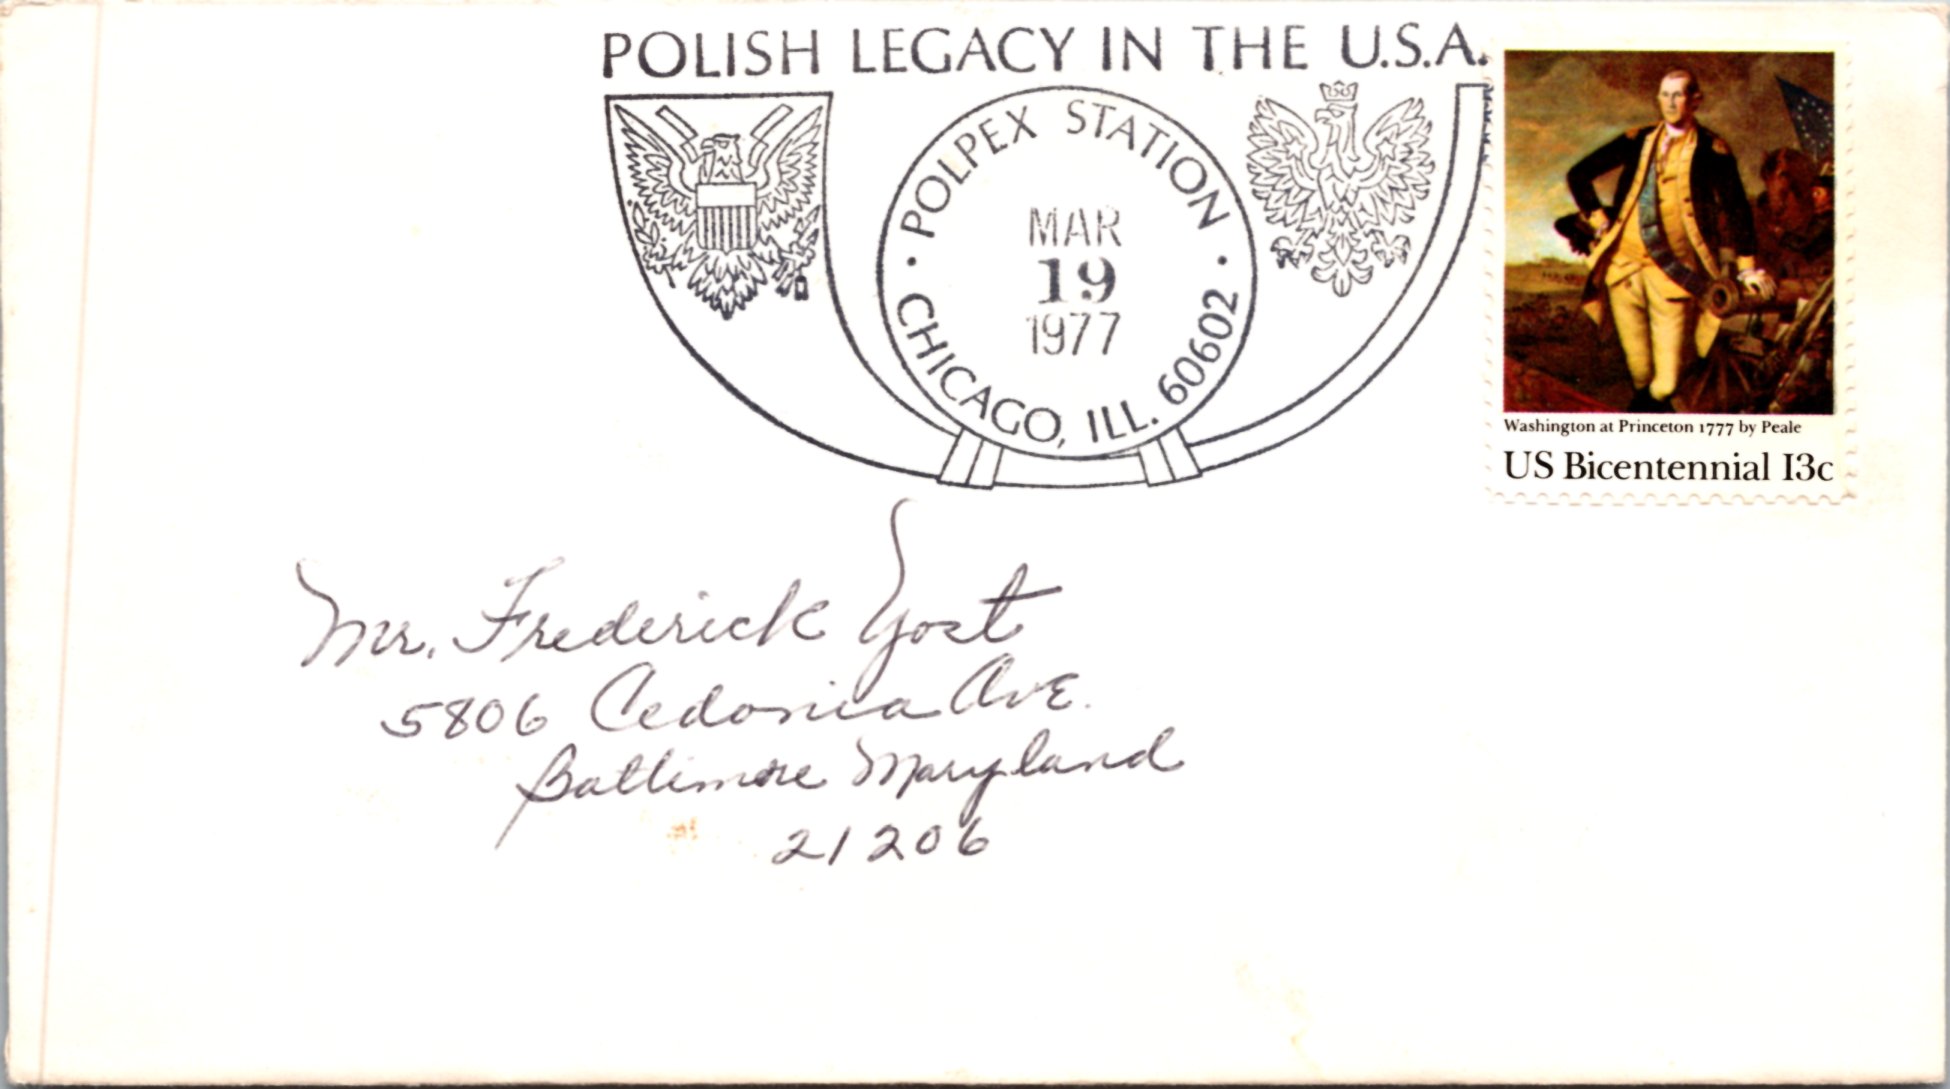 POLISH LEGACY IN THE U.S.A.
POLPEX STATION
MAR
19
1977
CHICAGO, ILL. 60602
Washington at Princeton 1777 by Peale
US Bicentennial 13c
Mr. Frederick Yost
5806 Cedonia Ave.
Baltimore Maryland
21206